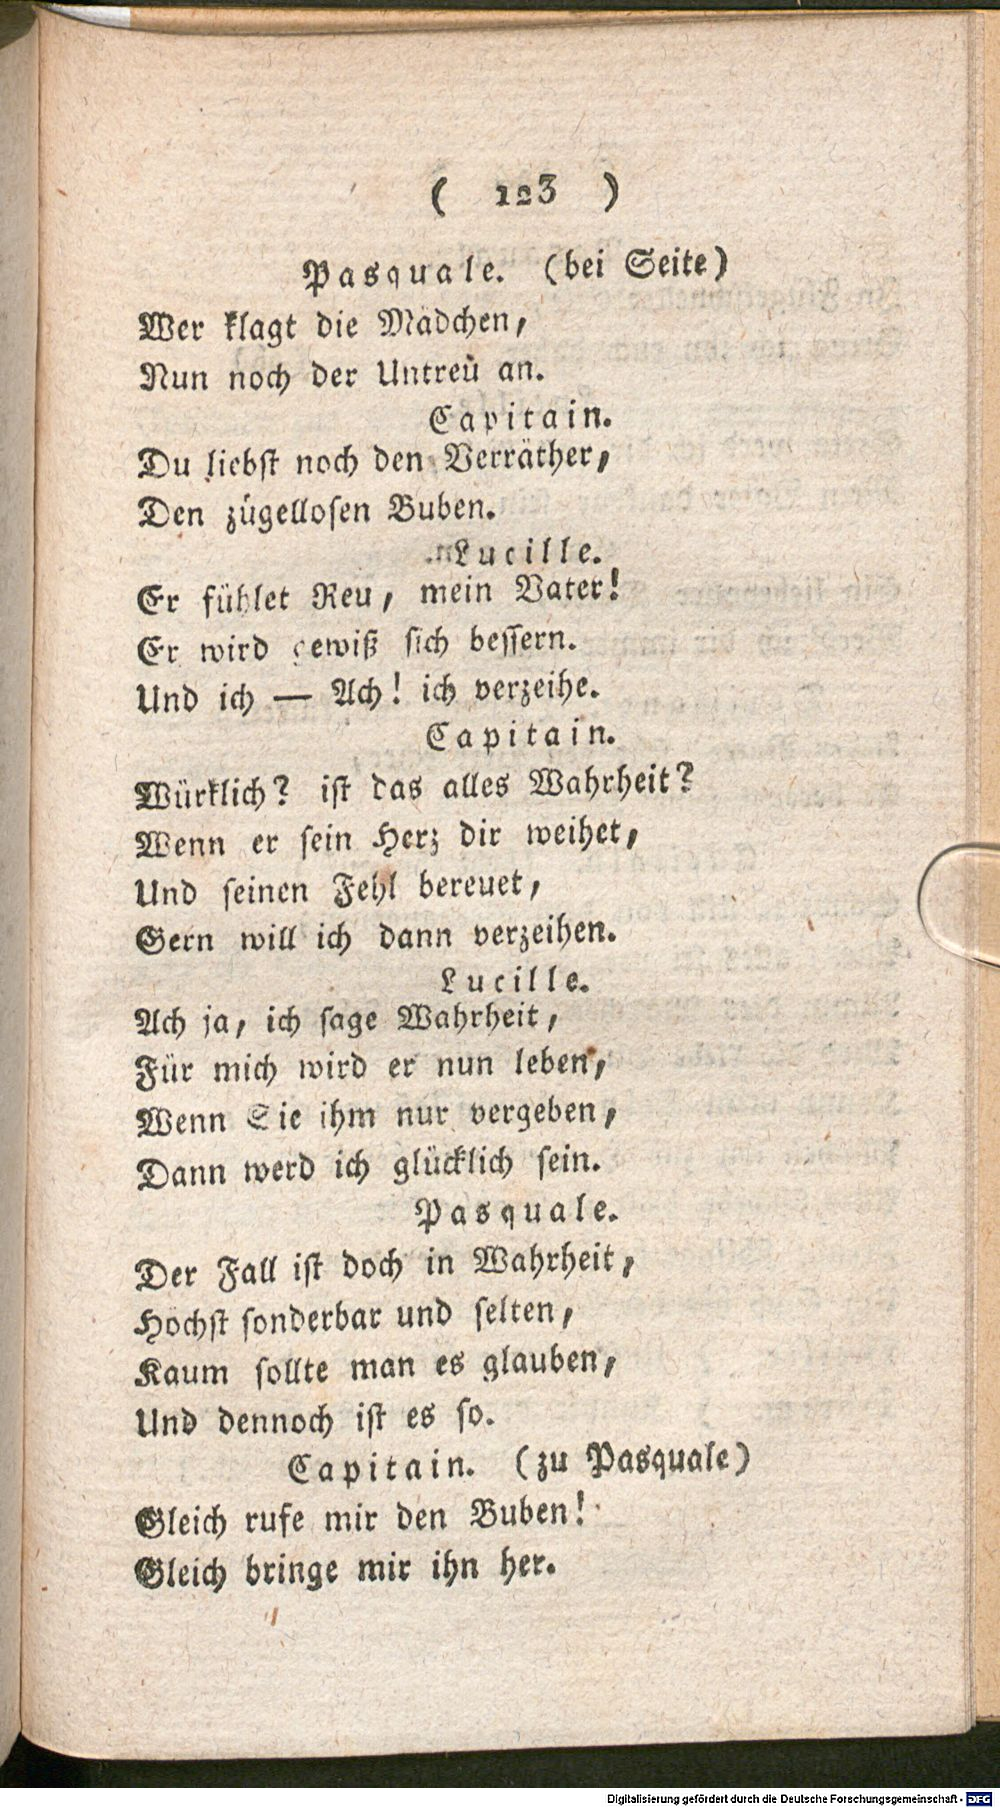 ( 123 )
Pasquale. (bei Seite)
Wer klagt die Mädchen,
Nun noch der Untreü an.
Capitain.
Du liebst noch den Verräther,
Den zügellosen Buben.
Lucille.
Er fühlet Reu, mein Vater!
Er wird gewiß sich bessern.
Und ich — Ach! ich verzeihe.
Capitain.
Würklich? ist das alles Wahrheit?
Wenn er sein Herz dir weihet,
Und seinen Fehl bereuet,
Gern will ich dann verzeihen.
Lucille.
Ach ja, ich sage Wahrheit,
Für mich wird er nun leben,
Wenn Sie ihm nur vergeben,
Dann werd ich glücklich sein.
Pasquale.
Der Fall ist doch in Wahrheit,
Höchst sonderbar und selten,
Kaum sollte man es glauben,
Und dennoch ist es so.
Capitain. (zu Pasquale)
Gleich rufe mir den Buben!
Gleich bringe mir ihn her.
Digitalisierung gefördert durch die Deutsche Forschungsgemeinschaft - DFG